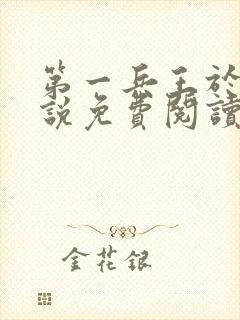 第一兵王於
說免費閱讀
金花銀